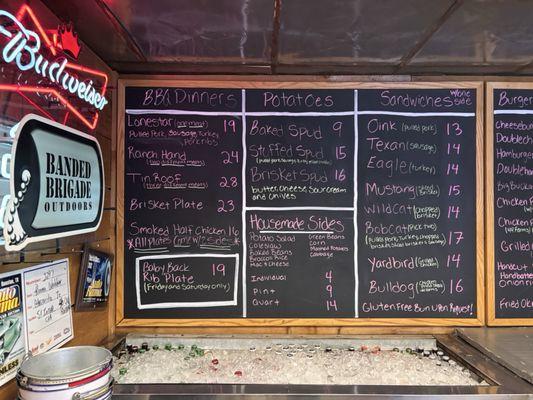 Budweiser
BANDED
BRIGADE
OUTDOORS
BBQ Dinners
Lonestar (one meat) 19
Pulled Pork, Sausage, Turkey,
or ribs
Ranch Hand 24
(two different meats)
Tin Roof 28
(three different meats)
Brisket Plate 23
Smoked Half Chicken 16
*All Plates
Baby Back 19
Rib Plate
(Friday and Saturday only)
Potatoes
Baked Spud 9
Stuffed Spud 15
Brisket Spud 16
butter, cheese, sour cream
and chives
Housemade Sides
Potato Salad
Coleslaw
Baked Beans
Mac + cheese
Green Beans
Corn
Mashed Potatoes
Cabbage
Individual 4
Pint 9
Quart 14
Sandwiches w/one side
Oink (pulled pork) 13
Texan (sausage) 14
Eagle (turkey) 14
Mustang (sliced brisket) 15
Wildcat (chopped brisket) 14
Bobcat (pick two) 17
Yardbird (grilled chicken) 14
Bulldog 16
Gluten Free Bun Upon Request
Burger
Cheesebu
Double
Hambur
Double
Chicken
Chicken
Grilled
Onion R
Fried